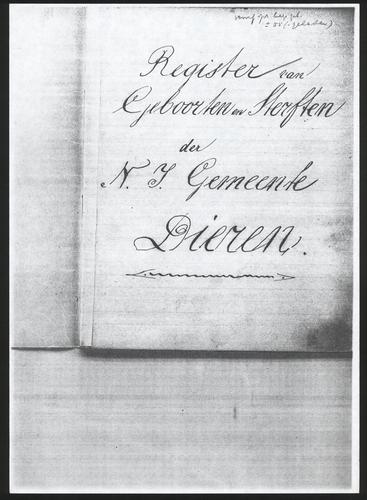 Register van
Geboorten en Sterften
der
N. I. Gemeente
Dieren.